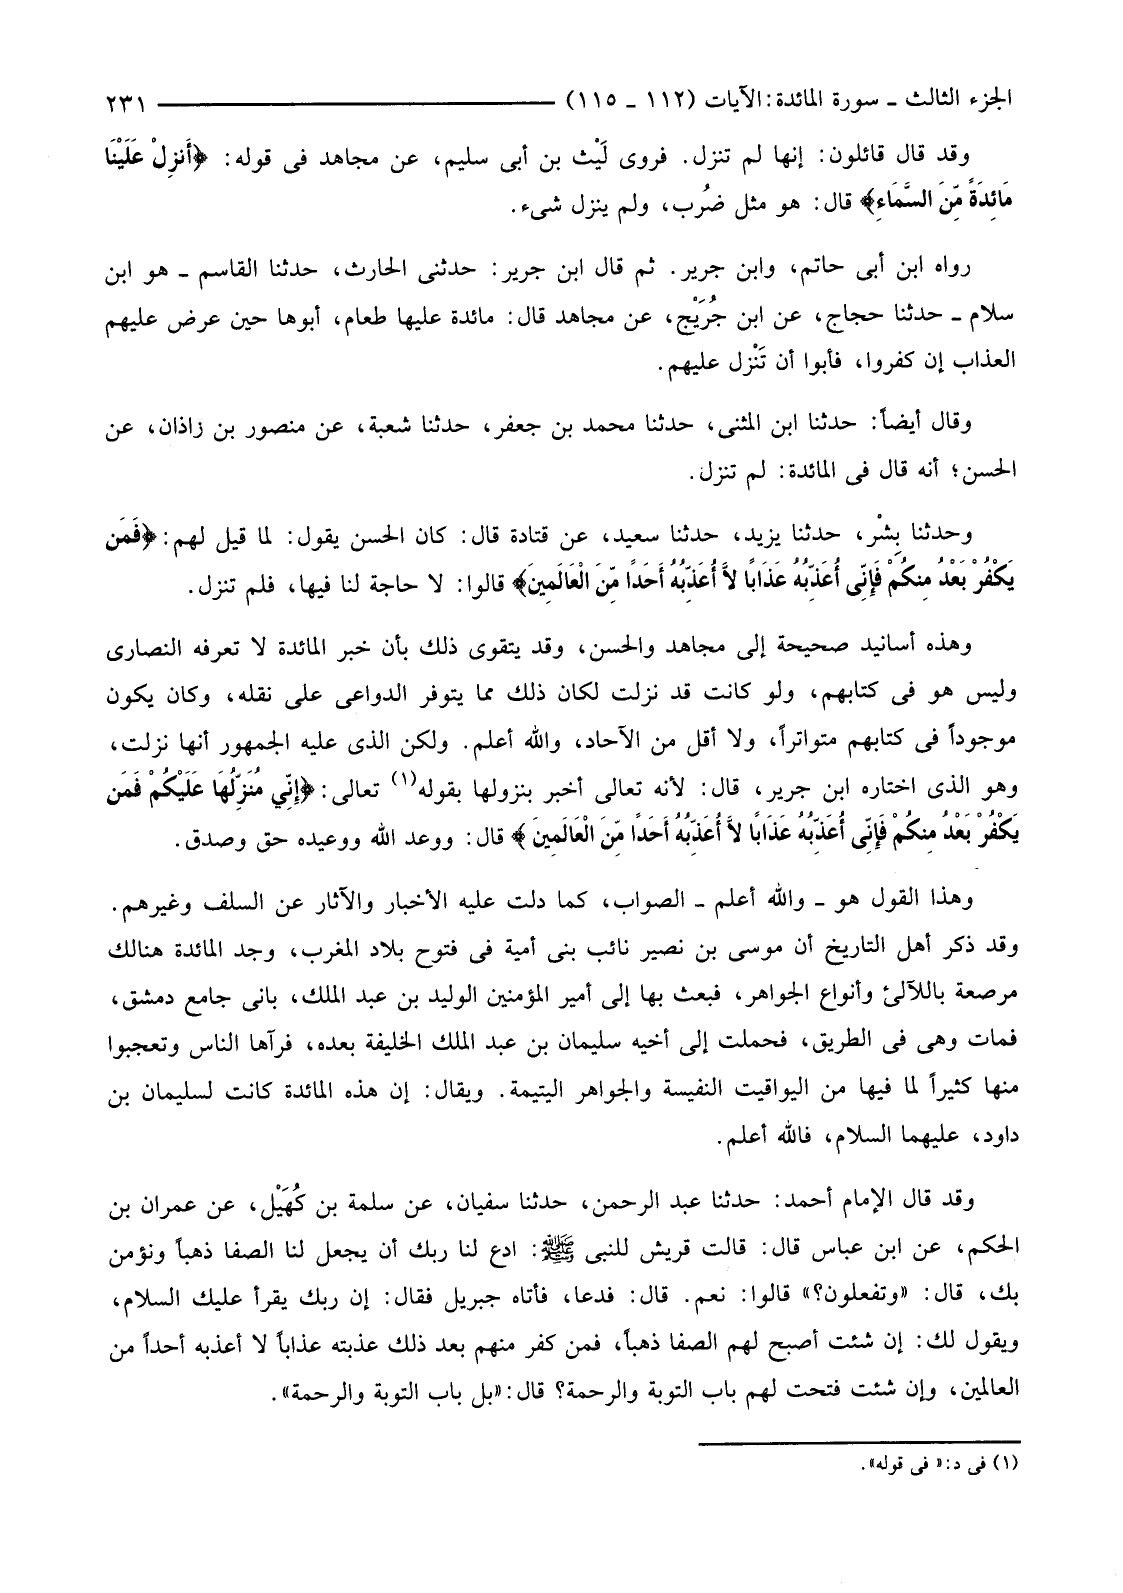 الجزء الثالث ـ سورة المائدة: الآيات (١١٢ ـ ١١٥) ٢٣١
وقد قال قائلون: إنها لم تنزل. فروى لَيْث بن أبى سليم، عن مجاهد فى قوله: ﴿أَنزِلْ عَلَيْنَا
مَائِدَةً مِّنَ السَّمَاءِ﴾ قال: هو مثل ضُرب، ولم ينزل شىء.
رواه ابن أبى حاتم، وابن جرير. ثم قال ابن جرير: حدثنى الحارث، حدثنا القاسم ـ هو ابن
سلام ـ حدثنا حجاج، عن ابن جُرَيْج، عن مجاهد قال: مائدة عليها طعام، أبوها حين عرض عليهم
العذاب إن كفروا، فأبوا أن تَنْزل عليهم.
وقال أيضاً: حدثنا ابن المثنى، حدثنا محمد بن جعفر، حدثنا شعبة، عن منصور بن زاذان، عن
الحسن؛ أنه قال فى المائدة: لم تنزل.
وحدثنا بِشْر، حدثنا يزيد، حدثنا سعيد، عن قتادة قال: كان الحسن يقول: لما قيل لهم: ﴿فَمَن
يَكْفُرْ بَعْدُ مِنكُمْ فَإِنِّى أُعَذِّبُهُ عَذَابًا لاَّ أُعَذِّبُهُ أَحَدًا مِّنَ الْعَالَمِينَ﴾ قالوا: لا حاجة لنا فيها، فلم تنزل.
وهذه أسانيد صحيحة إلى مجاهد والحسن، وقد يتقوى ذلك بأن خبر المائدة لا تعرفه النصارى
وليس هو فى كتابهم، ولو كانت قد نزلت لكان ذلك مما يتوفر الدواعى على نقله، وكان يكون
موجوداً فى كتابهم متواتراً، ولا أقل من الآحاد، والله أعلم. ولكن الذى عليه الجمهور أنها نزلت،
وهو الذى اختاره ابن جرير، قال: لأنه تعالى أخبر بنزولها بقوله(١) تعالى: ﴿إِنِّي مُنَزِّلُهَا عَلَيْكُمْ فَمَن
يَكْفُرْ بَعْدُ مِنكُمْ فَإِنِّى أُعَذِّبُهُ عَذَابًا لاَّ أُعَذِّبُهُ أَحَدًا مِّنَ الْعَالَمِينَ﴾ قال: ووعد الله ووعيده حق وصدق.
وهذا القول هو ـ والله أعلم ـ الصواب، كما دلت عليه الأخبار والآثار عن السلف وغيرهم.
وقد ذكر أهل التاريخ أن موسى بن نصير نائب بنى أمية فى فتوح بلاد المغرب، وجد المائدة هنالك
مرصعة باللآلئ وأنواع الجواهر، فبعث بها إلى أمير المؤمنين الوليد بن عبد الملك، بانى جامع دمشق،
فمات وهى فى الطريق، فحملت إلى أخيه سليمان بن عبد الملك الخليفة بعده، فرآها الناس وتعجبوا
منها كثيراً لما فيها من اليواقيت النفيسة والجواهر اليتيمة. ويقال: إن هذه المائدة كانت لسليمان بن
داود، عليهما السلام، فالله أعلم.
وقد قال الإمام أحمد: حدثنا عبد الرحمن، حدثنا سفيان، عن سلمة بن كُهَيْل، عن عمران بن
الحكم، عن ابن عباس قال: قالت قريش للنبى ﷺ: ادع لنا ربك أن يجعل لنا الصفا ذهباً ونؤمن
بك، قال: «وتفعلون؟» قالوا: نعم. قال: فدعا، فأتاه جبريل فقال: إن ربك يقرأ عليك السلام،
ويقول لك: إن شئت أصبح لهم الصفا ذهباً، فمن كفر منهم بعد ذلك عذبته عذاباً لا أعذبه أحداً من
العالمين، وإن شئت فتحت لهم باب التوبة والرحمة؟ قال: «بل باب التوبة والرحمة».
(١) فى د: « فى قوله».